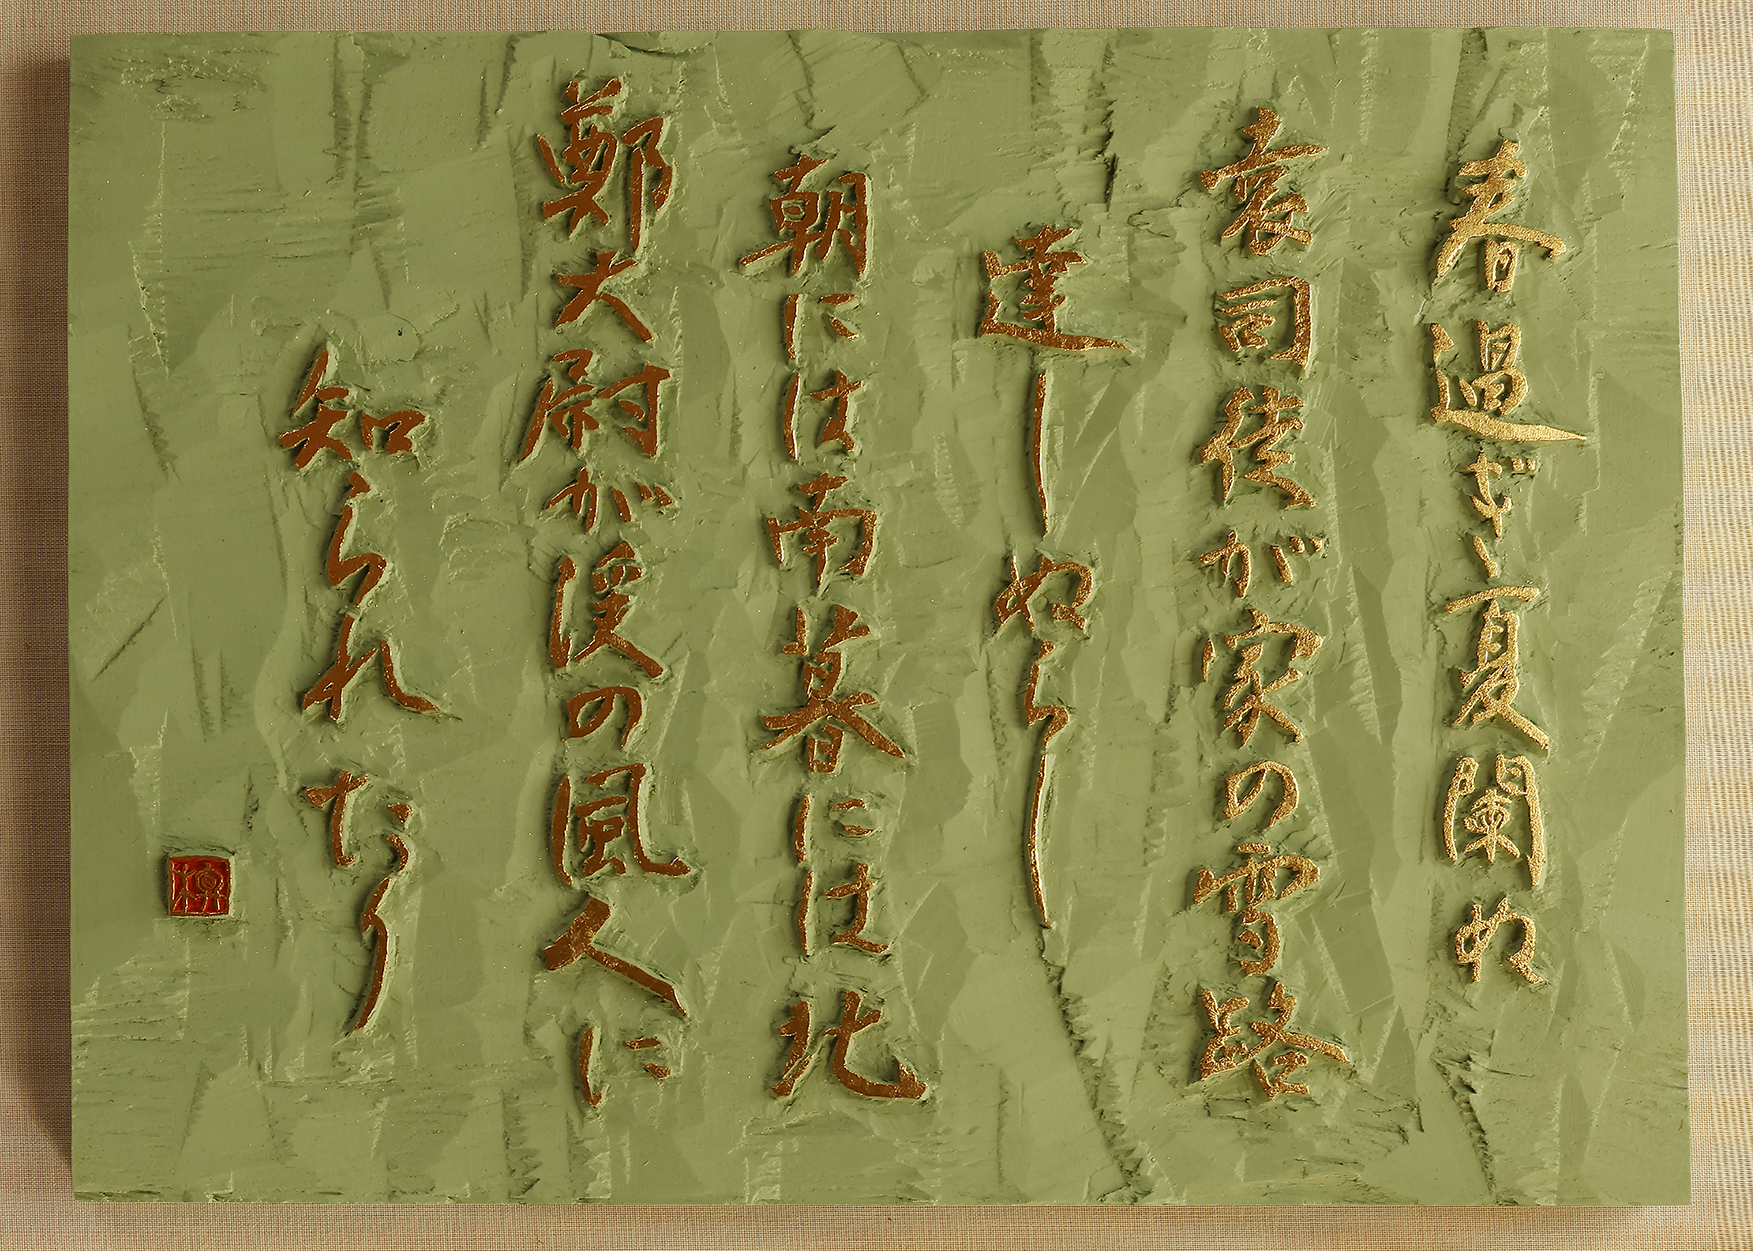 春過ぎ、夏闌ぬ
袁司徒が家の雪路
達しぬらし
朝には南暮には北
鄭大尉が渓の風人に
知られたり